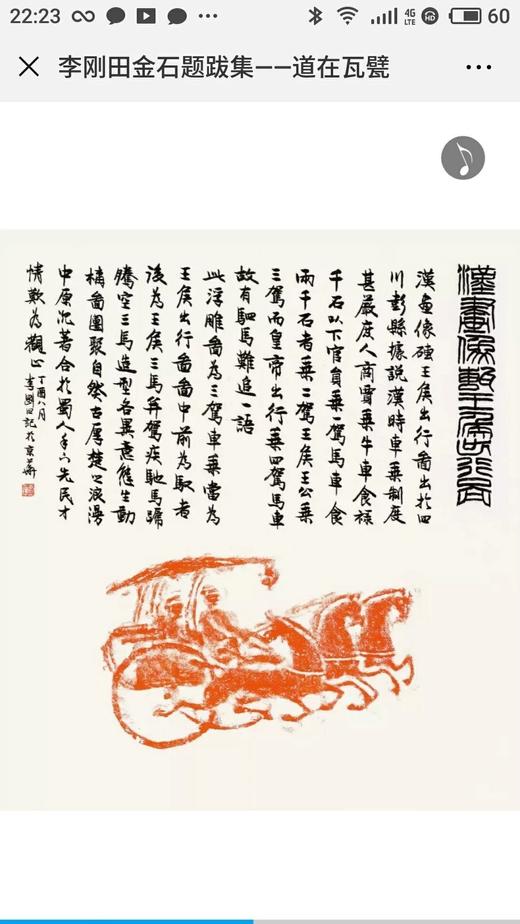 22:23
4G LTE
HD
60
李刚田金石题跋集——道在瓦甓
漢畫像塼王矦出行圖
漢畫像磚王矦出行啚出於四
川彭縣據説漢時車乗制度
甚嚴庶人商賈乗牛車食禄
千石以下官員乗一駕馬車食
兩千石者乗二駕王矦王公乗
三駕而皇帝出行乗四駕馬車
故有駟馬難追一語
此浮雕啚為三駕車乗當為
王矦出行啚啚中前為馭者
後為王矦三馬并駕疾馳馬蹄
騰空三馬造型各異意態生動
構啚團聚自然古厚楚之浪漫
中原沉著合於蜀人手下先民才
情歎為觀止
丁酉八月
李剛田記於京華